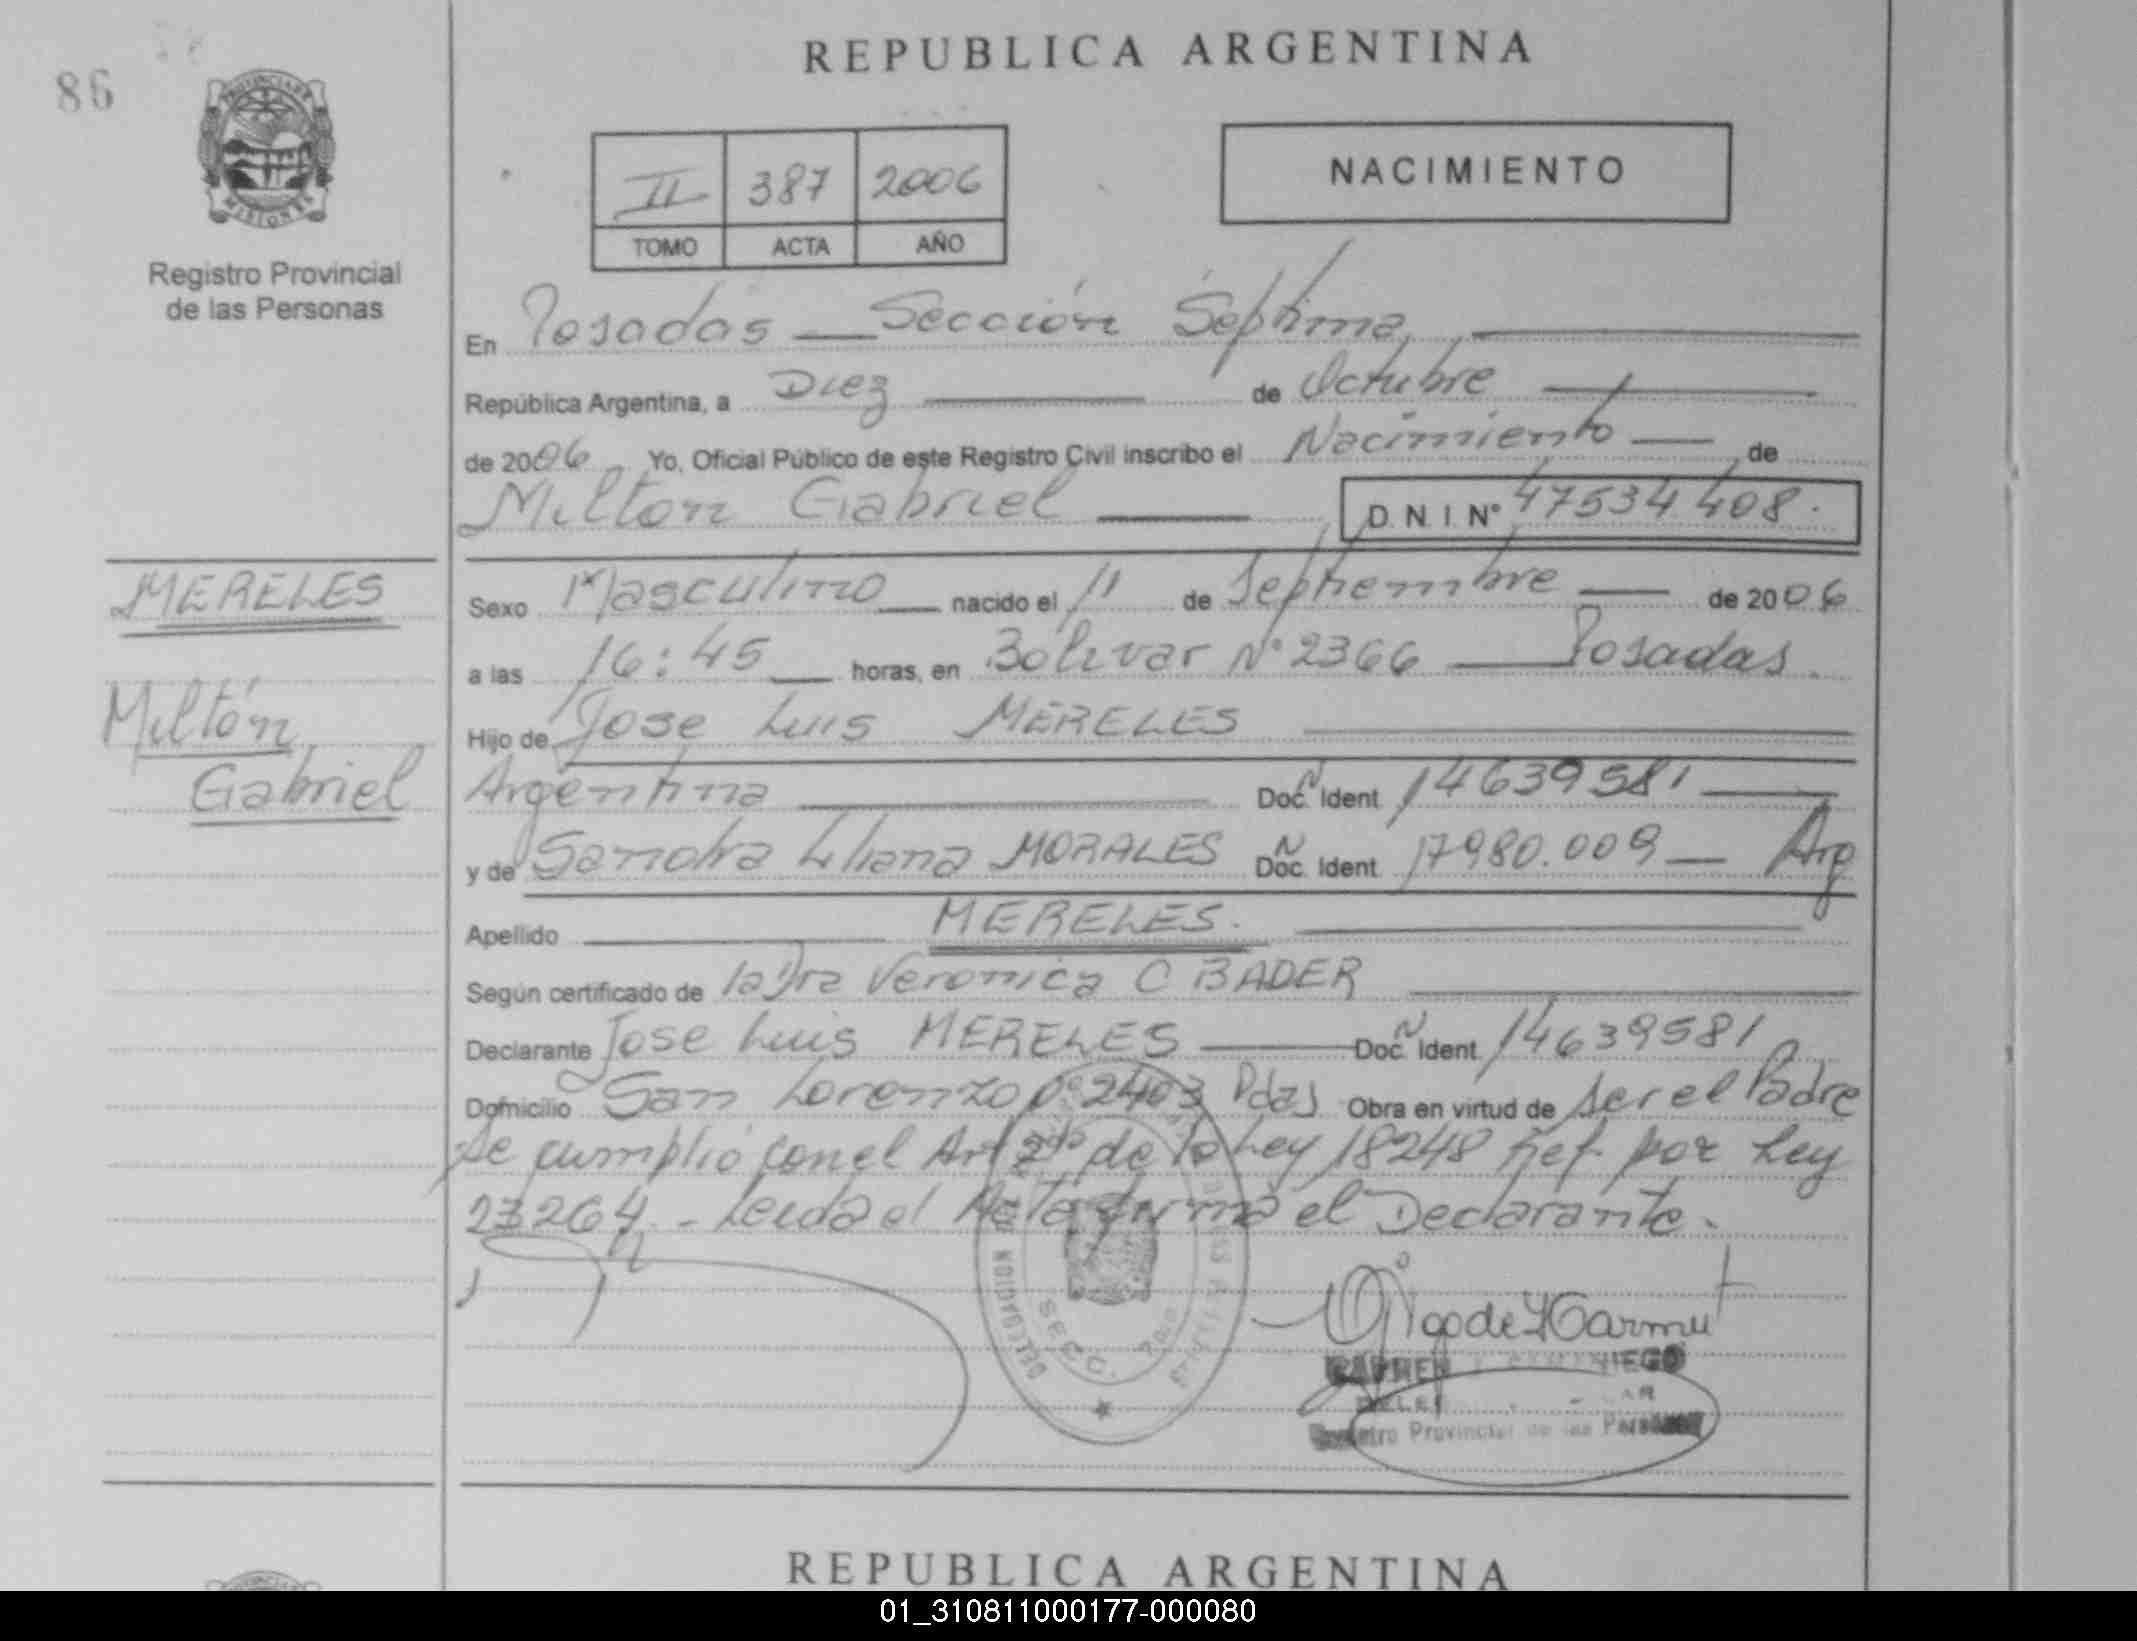 86
REPUBLICA ARGENTINA
PROVINCIA DE
MISIONES
Registro Provincial
de las Personas
II 387 2006
TOMO ACTA AÑO
NACIMIENTO
En Posadas — Sección Séptima,
República Argentina, a Diez de Octubre
de 2006 Yo, Oficial Público de este Registro Civil inscribo el Nacimiento de
Milton Gabriel D.N.I. N° 47534408.
MERELES
Milton
Gabriel
Sexo Masculino nacido el 11 de Septiembre de 2006
a las 16:45 horas, en Bolivar N° 2366 — Posadas
Hijo de Jose Luis MERELES
Argentina Doc. Ident 14639581
y de Sandra Liliana MORALES Doc. Ident. 17980.009 — Arg
Apellido MERELES.
Según certificado de la Dra Veronica C BADER
Declarante Jose Luis MERELES Doc. Ident. 14639581
Domicilio San Lorenzo N° 2403 Pdas Obra en virtud de ser el Padre
Se cumplió con el Art 2do de la Ley 18248 Ref. por Ley
23264. - Leida el Acta firma el Declarante.
DELEGACION SECC. 7ma
CARMEN
Registro Provincial de las Personas
REPUBLICA ARGENTINA
01_310811000177-000080